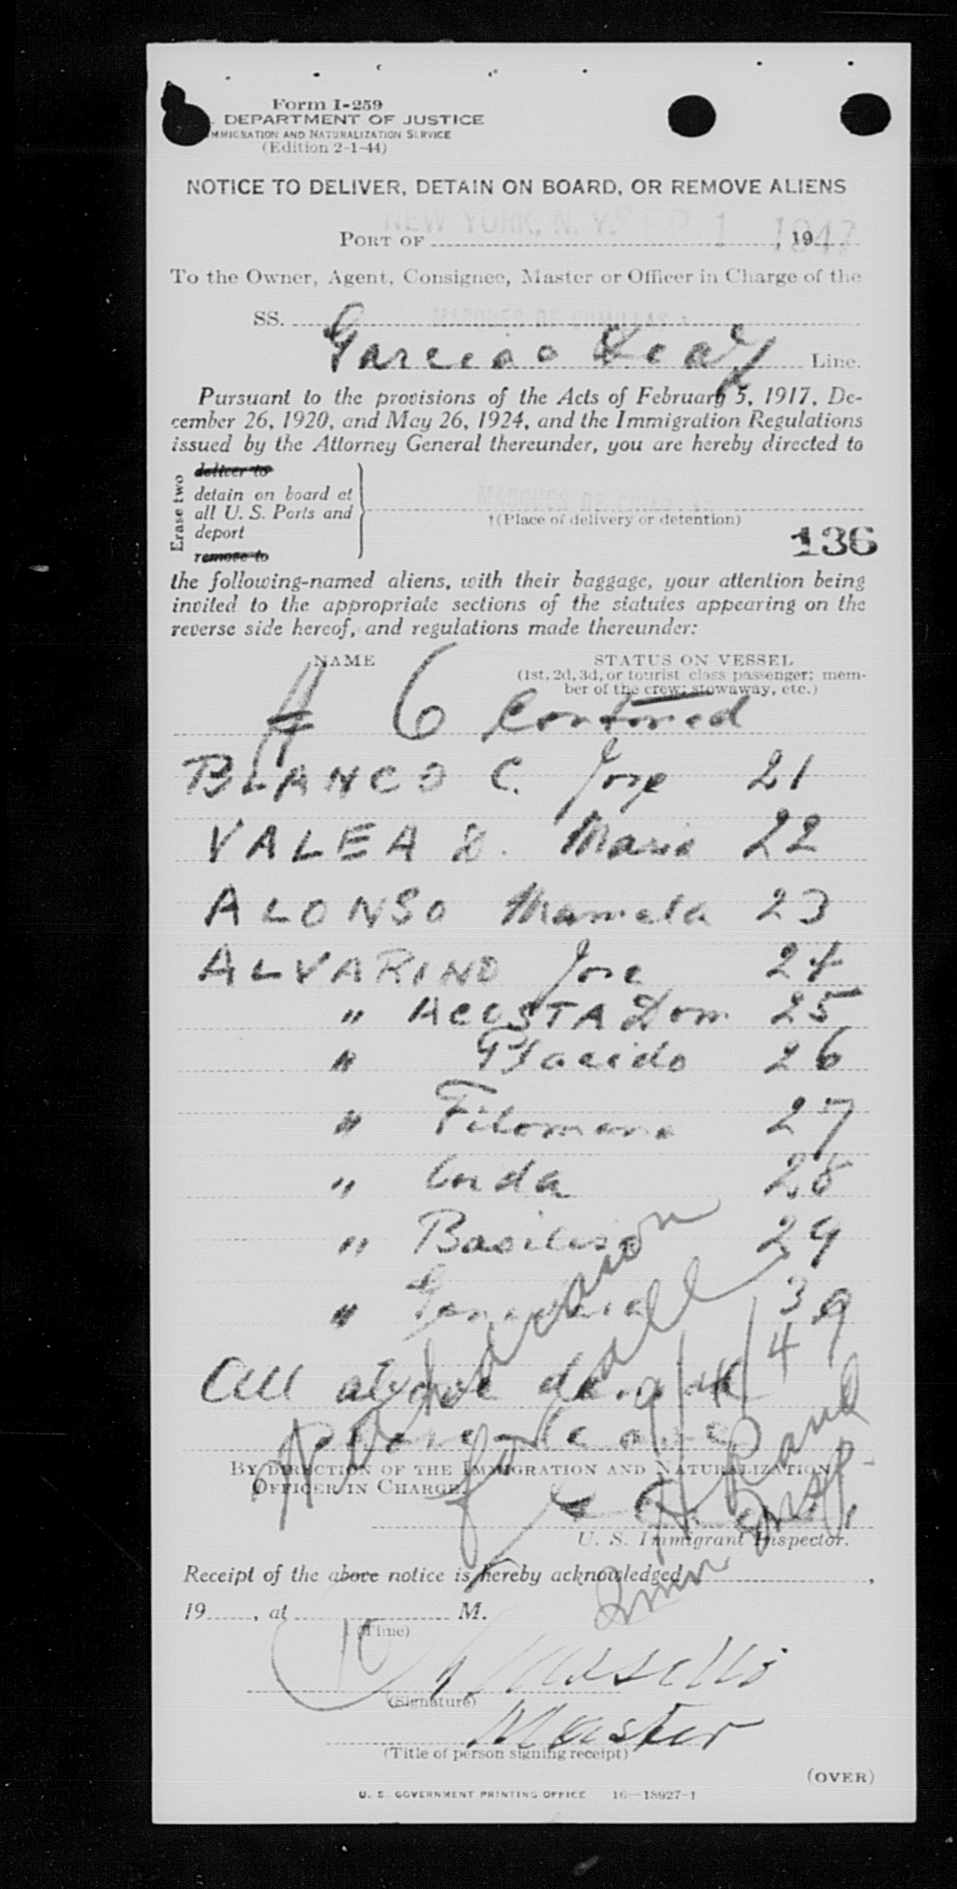 Form I-259
DEPARTMENT OF JUSTICE
IMMIGRATION AND NATURALIZATION SERVICE
(Edition 2-1-44)
NOTICE TO DELIVER, DETAIN ON BOARD, OR REMOVE ALIENS
NEW YORK, N. Y. 1 1947
PORT OF , 19
To the Owner, Agent, Consignee, Master or Officer in Charge of the
SS. MARQUES DE COMILLAS
Garcia & Diaz Line.
Pursuant to the provisions of the Acts of February 5, 1917, De-
cember 26, 1920, and May 26, 1924, and the Immigration Regulations
issued by the Attorney General thereunder, you are hereby directed to
Erase two
deliver to
detain on board at
all U. S. Ports and
deport
remove to
MARQUES DE COMILLAS
†(Place of delivery or detention)
136
the following-named aliens, with their baggage, your attention being
invited to the appropriate sections of the statutes appearing on the
reverse side hereof, and regulations made thereunder:
NAME
STATUS ON VESSEL
(1st, 2d, 3d, or tourist class passenger; mem-
ber of the crew; stowaway, etc.)
# 6 Continued
BLANCO C. Jose 21
VALEA D. Maria 22
ALONSO Manuela 23
ALVARINO Jose 24
" ACOSTA Dom 25
" Placido 26
" Filomena 27
" 28
" Basilisa 29
" 30
All above
BY DIRECTION OF THE IMMIGRATION AND NATURALIZATION
OFFICER IN CHARGE.
U. S. Immigrant Inspector.
Receipt of the above notice is hereby acknowledged ,
19 , at M.
(Time)
(Signature)
Master
(Title of person signing receipt)
(OVER)
U. S. GOVERNMENT PRINTING OFFICE 16—18927-1